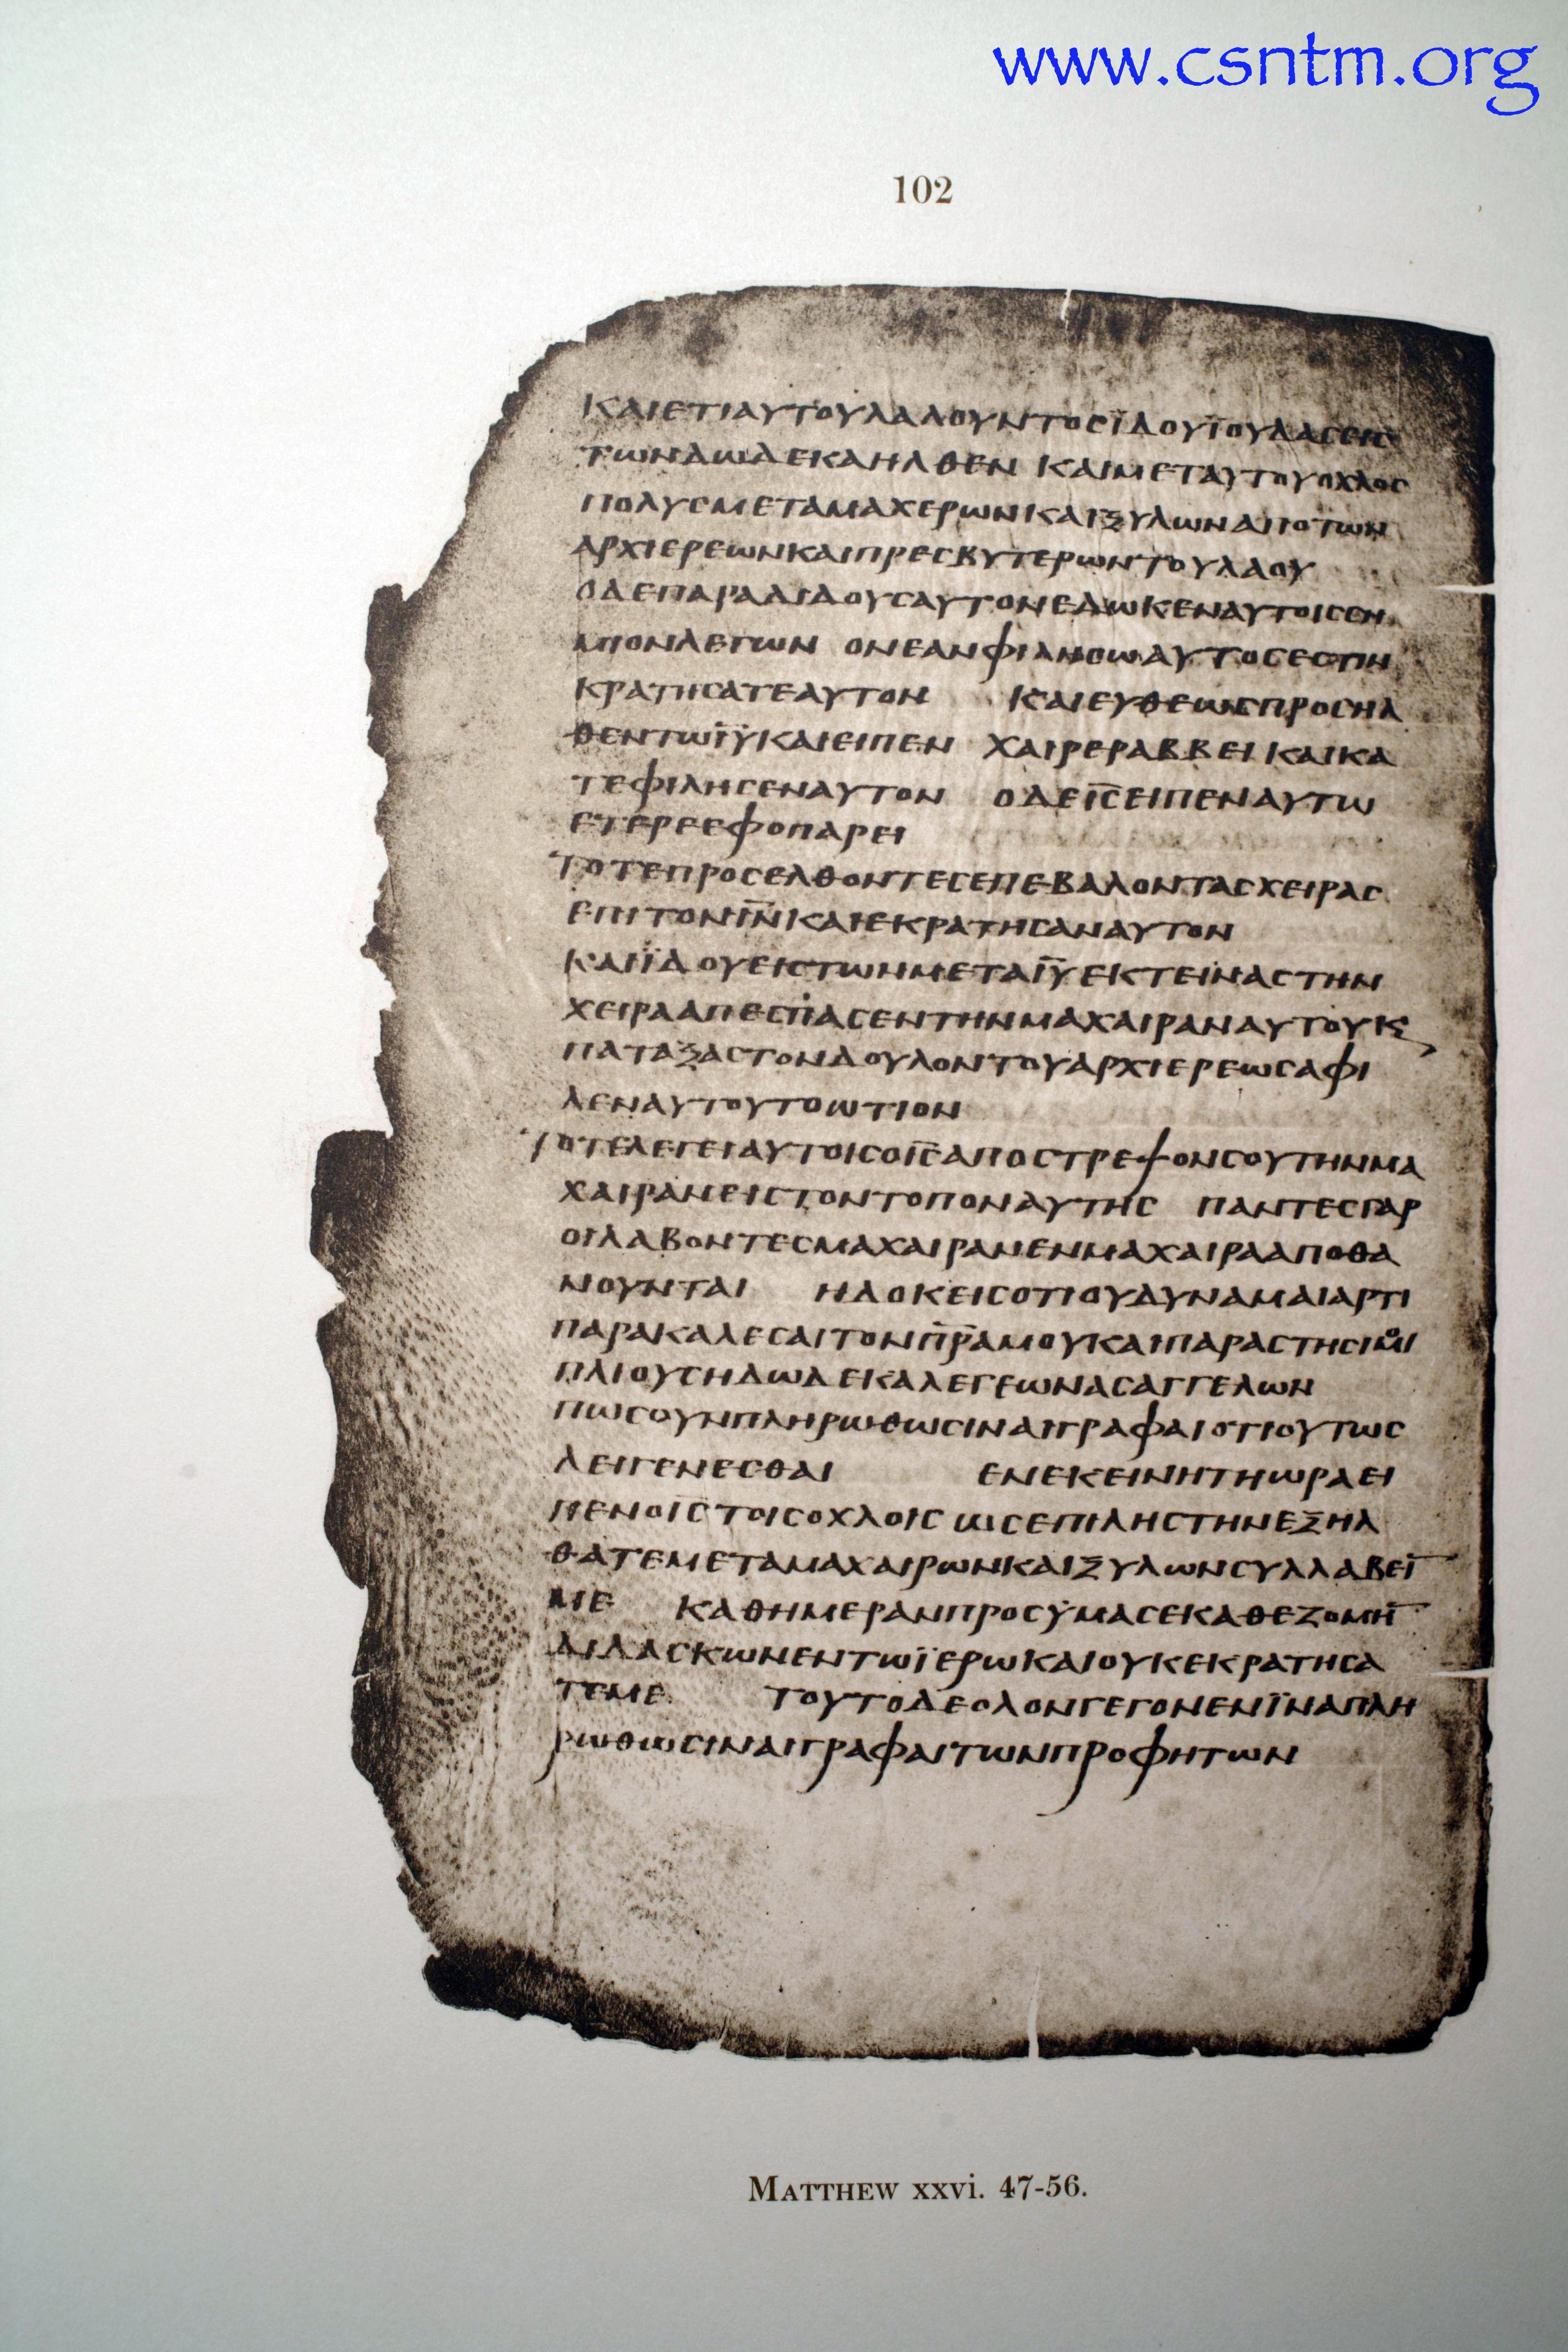 www.csntm.org
102
ΚΑΙΕΤΙΑΥΤΟΥΛΑΛΟΥΝΤΟСΪΔΟΥΪΟΥΔΑСΕΙС
ΤωΝΔωΔΕΚΑΗΛΘΕΝ ΚΑΙΜΕΤΑΥΤΟΥΟΧΛΟС
ΠΟΛΥСΜΕΤΑΜΑΧΕΡωΝΚΑΙΞΥΛωΝΑΠΟΤωΝ
ΑΡΧΙΕΡΕωΝΚΑΙΠΡΕСΒΥΤΕΡωΝΤΟΥΛΑΟΥ
ΟΔΕΠΑΡΑΔΙΔΟΥСΑΥΤΟΝΕΔωΚΕΝΑΥΤΟΙССΗ
ΜΙΟΝΛΕΓωΝ ΟΝΕΑΝΦΙΛΗСωΑΥΤΟСΕСΤΙΝ
ΚΡΑΤΗСΑΤΕΑΥΤΟΝ ΚΑΙΕΥΘΕωСΠΡΟСΗΛ
ΘΕΝΤωΙ̅Υ̅ΚΑΙΕΙΠΕΝ ΧΑΙΡΕΡΑΒΒΕΙΚΑΙΚΑ
ΤΕΦΙΛΗСΕΝΑΥΤΟΝ ΟΔΕΙ̅С̅ΕΙΠΕΝΑΥΤω
ΕΤΕΡΕΕΦΟΠΑΡΕΙ
ΤΟΤΕΠΡΟСΕΛΘΟΝΤΕСΕΠΕΒΑΛΟΝΤΑСΧΕΙΡΑС
ΕΠΙΤΟΝΙ̅Ν̅ΚΑΙΕΚΡΑΤΗСΑΝΑΥΤΟΝ
ΚΑΙΪΔΟΥΕΙСΤωΝΜΕΤΑΙ̅Υ̅ΕΚΤΕΙΝΑСΤΗΝ
ΧΕΙΡΑΑΠΕСΠΑСΕΝΤΗΝΜΑΧΑΙΡΑΝΑΥΤΟΥΚ
ΠΑΤΑΞΑСΤΟΝΔΟΥΛΟΝΤΟΥΑΡΧΙΕΡΕωСΑΦΙ
ΛΕΝΑΥΤΟΥΤΟωΤΙΟΝ
ΤΟΤΕΛΕΓΕΙΑΥΤΟΙСΟΙ̅С̅ΑΠΟСΤΡΕΦΟΝСΟΥΤΗΝΜΑ
ΧΑΙΡΑΝΕΙСΤΟΝΤΟΠΟΝΑΥΤΗС ΠΑΝΤΕСΓΑΡ
ΟΙΛΑΒΟΝΤΕСΜΑΧΑΙΡΑΝΕΝΜΑΧΑΙΡΑΑΠΟΘΑ
ΝΟΥΝΤΑΙ ΗΔΟΚΕΙСΟΤΙΟΥΔΥΝΑΜΑΙΑΡΤΙ
ΠΑΡΑΚΑΛΕСΑΙΤΟΝΠ̅Ρ̅ΑΜΟΥΚΑΙΠΑΡΑСΤΗСΙΜΟΙ
ΠΛΙΟΥСΗΔωΔΕΚΑΛΕΓΕωΝΑСΑΓΓΕΛωΝ
ΠωСΟΥΝΠΛΗΡωΘωСΙΝΑΙΓΡΑΦΑΙΟΤΙΟΥΤωС
ΔΕΙΓΕΝΕСΘΑΙ ΕΝΕΚΕΙΝΗΤΗωΡΑΕΙ
ΠΕΝΟΙ̅С̅ΤΟΙСΟΧΛΟΙС ωСΕΠΙΛΗСΤΗΝΕΞΗΛ
ΘΑΤΕΜΕΤΑΜΑΧΑΙΡωΝΚΑΙΞΥΛωΝСΥΛΛΑΒΕΙ̅
ΜΕ ΚΑΘΗΜΕΡΑΝΠΡΟСΫΜΑСΕΚΑΘΕΖΟΜΗ̅
ΔΙΔΑСΚωΝΕΝΤωΪΕΡωΚΑΙΟΥΚΕΚΡΑΤΗСΑ
ΤΕΜΕ ΤΟΥΤΟΔΕΟΛΟΝΓΕΓΟΝΕΝΪΝΑΠΛΗ
ΡωΘωСΙΝΑΙΓΡΑΦΑΙΤωΝΠΡΟΦΗΤωΝ
MATTHEW xxvi. 47-56.